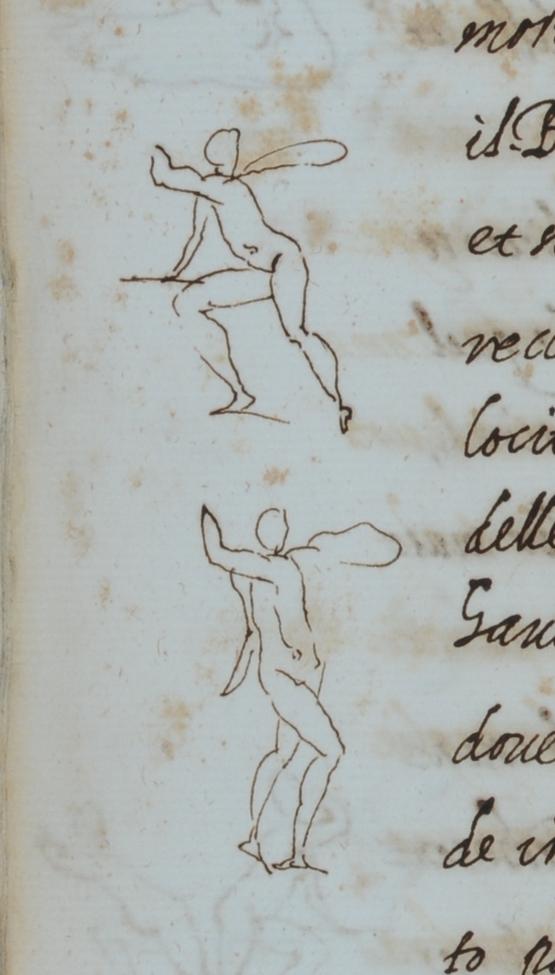 mor
il B
et s
recc
locit
delle
Gau
doue
de in
to p